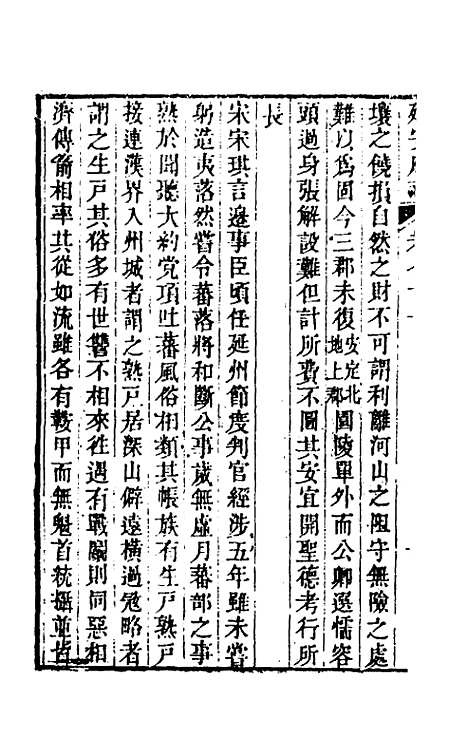 壤之饒損自然之財不可謂利離河山之阻守無險之處
難以爲固今三郡未復安定北地上郡園陵單外而公卿選懦容
頭過身張解設難但計所費不圖其安宜開聖德考行所
長
宋宋琪言邊事臣頃任延州節度判官經涉五年雖未嘗
躬造夷落然嘗令蕃落將和斷公事歲無虛月蕃部之事
熟於聞聽大約党項吐蕃風俗相類其帳族有生戸熟戸
接連漢界入州城者謂之熟戸居深山僻遠橫過寇略者
謂之生戸其俗多有世讐不相來徃遇有戰鬬則同惡相
濟傳箭相率其從如流雖各有鞍甲而無魁首統攝並皆